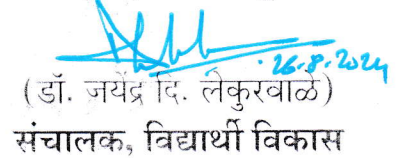 26.8.2024
(डॉ. जयेंद्र दि. लेकुरवाळे)
संचालक, विद्यार्थी विकास